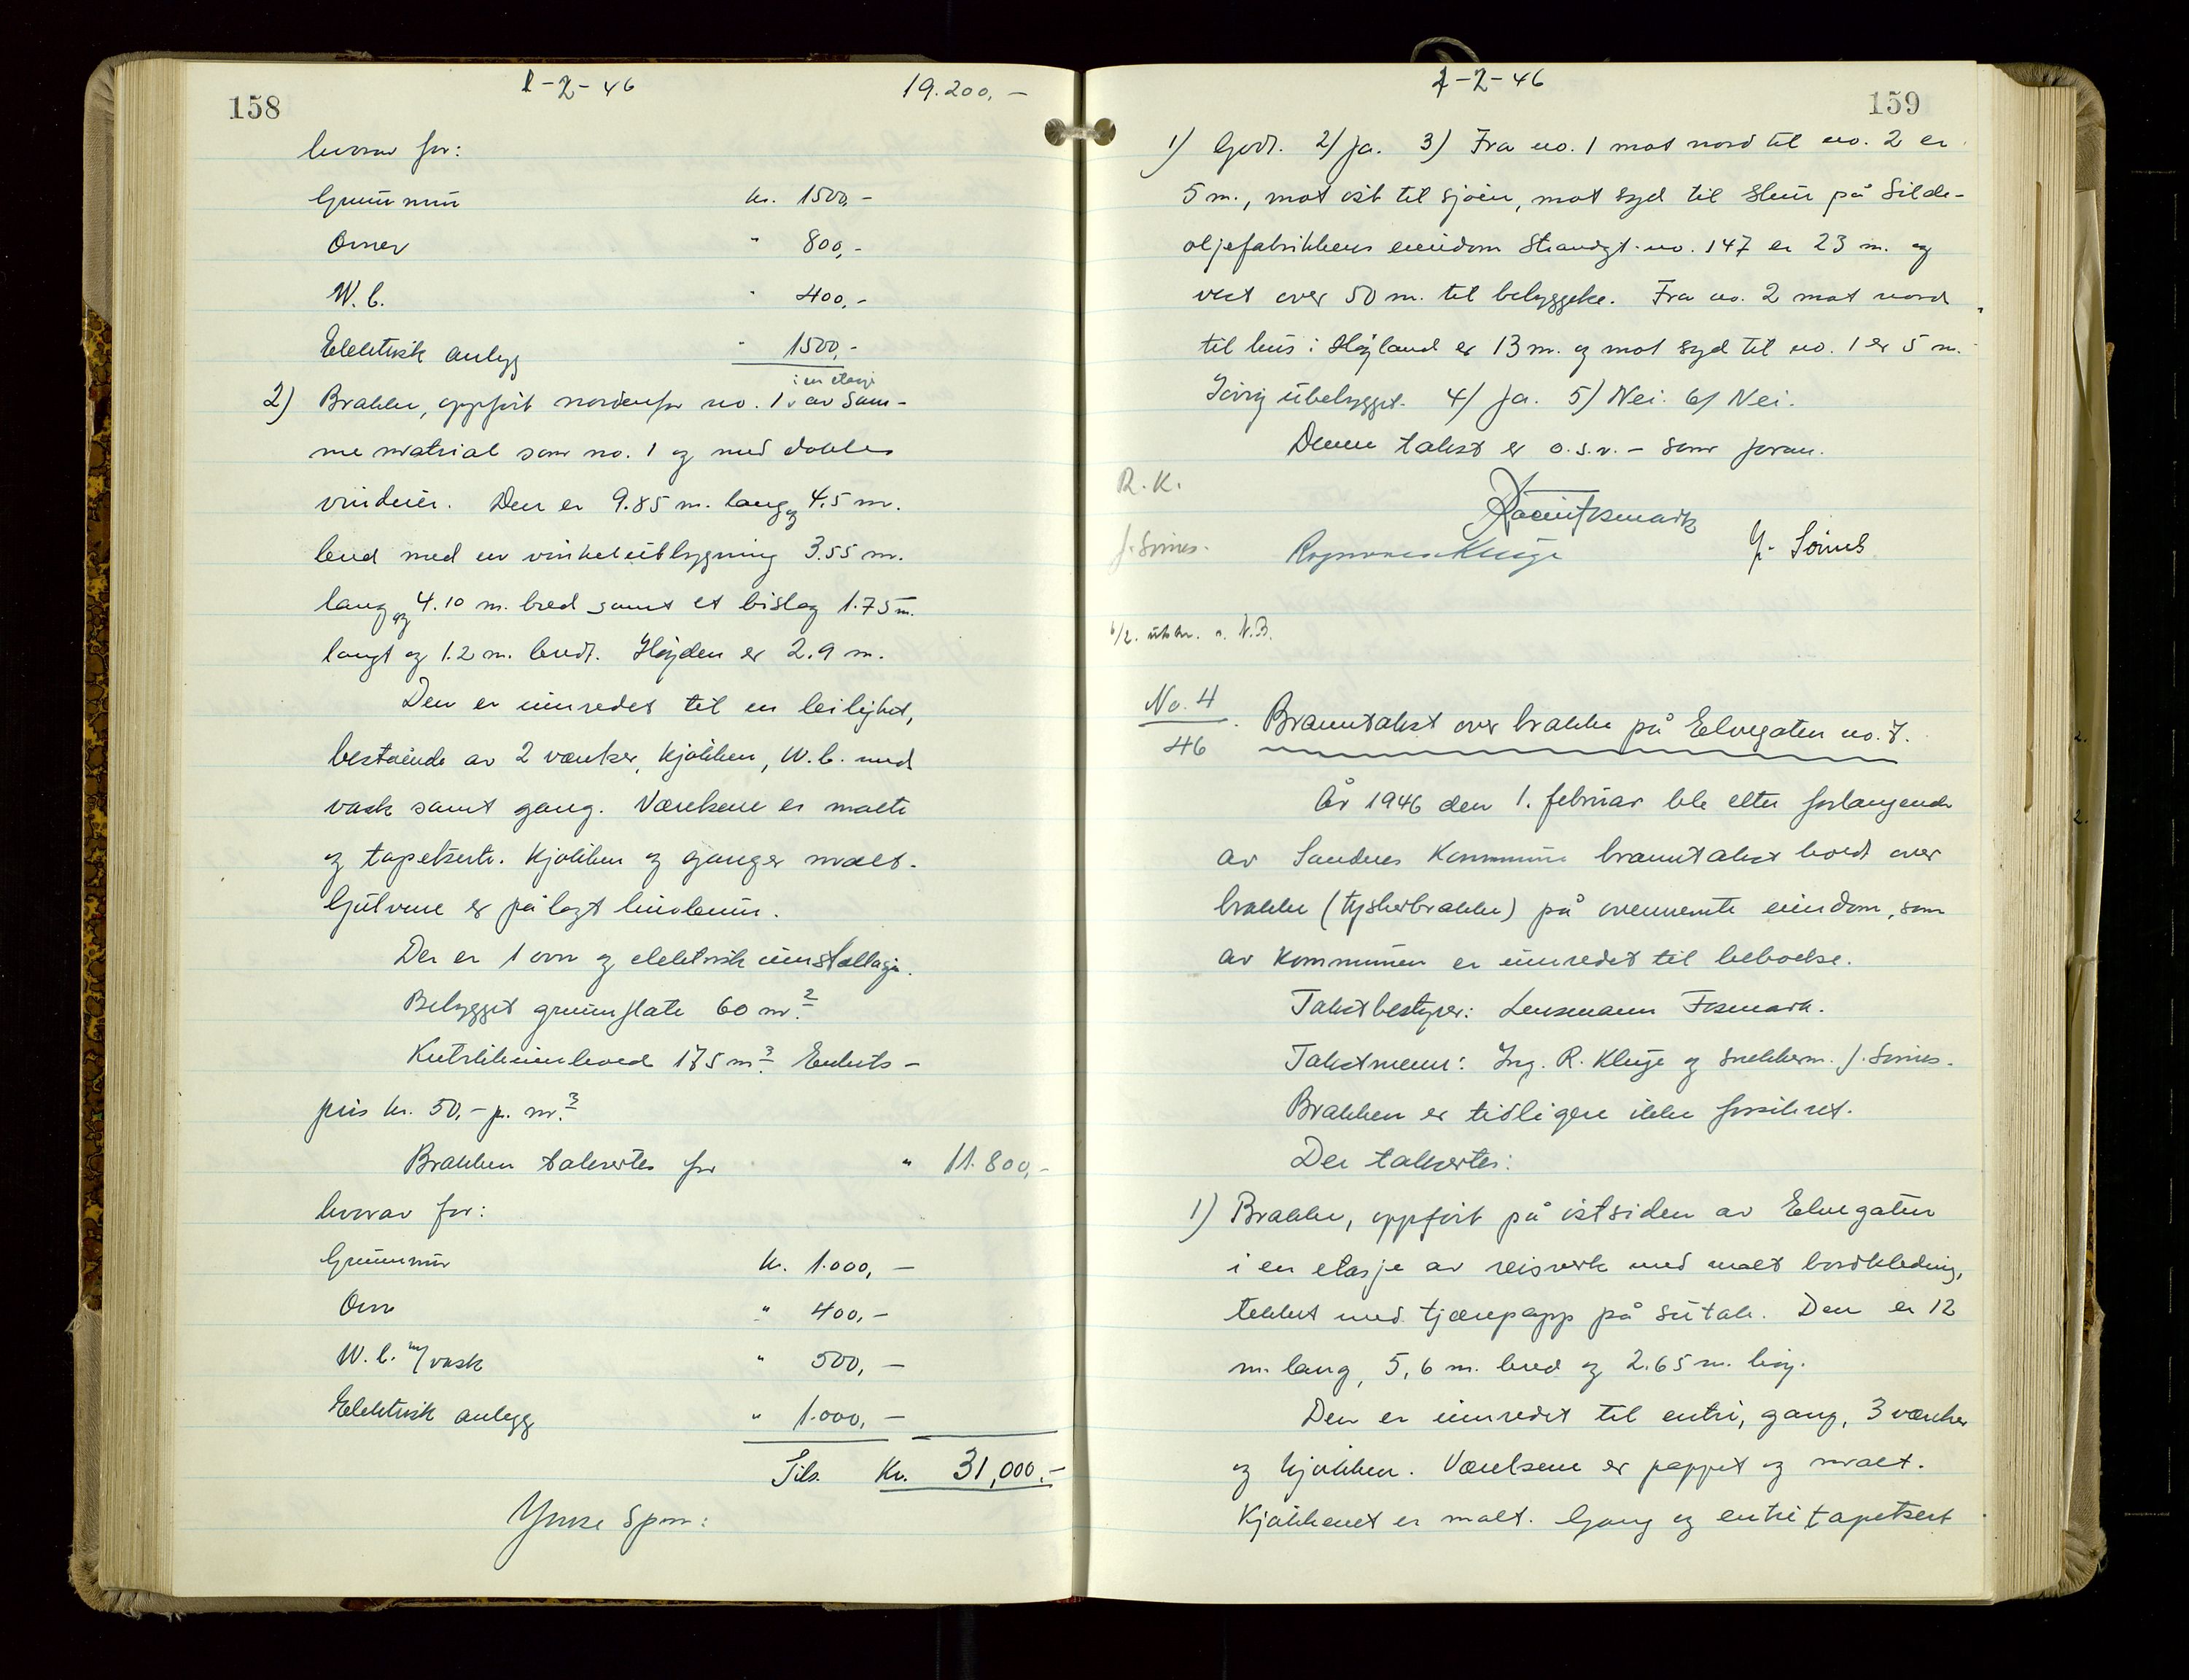 158
1-2-46
19.200,-
hvorav for:
Grunnmur kr. 1500,-
Ovner " 800,-
W.C. " 400,-
Elektrisk anlegg " 1500,-
i en etasje
2) Brakke, oppført nordenfor no. 1 v av sam-
me matrial som no. 1 og med doble
vinduer. Den er 9.85 m. lang og 4.5 m.
bred med en vinkelutbygning 3.55 m.
lang og 4.10 m. bred samt et bislag 1.75 m.
langt og 1.2 m. bredt. Højden er 2.9 m.
Den er innredet til en leilighet,
bestående av 2 værelser, kjøkken, W.C. med
vask samt gang. Værelsene er malte
og tapetserte. Kjøkken og ganger malt.
Gulvene er pålagt linoleum.
Der er 1 ovn og elektrisk innstallasje.
Bebygget grunnflate 60 m.2
Kubikkinnhold 175 m.3 Enhets-
pris kr. 50,- p. m.3
Brakken takseres for " 11.800,-
hvorav for:
Grunnmur kr. 1.000,-
Ovn " 400,-
W.C. m/vask " 500,-
Elektrisk anlegg " 1.000,-
Tils. Kr. 31,000.-
Ymse spm:
159
1-2-46
1) Godt. 2) Ja. 3) Fra no. 1 mot nord til no. 2 er
5 m., mot øst til sjøen, mot syd til skur på Silde-
oljefabrikkens eiendom Strandgt. no. 147 er 23 m. og
vest over 50 m. til bebyggelse. Fra no. 2 mot nord
til hus i Højland er 13 m. og mot syd til no. 1 er 5 m.
Iøvrig ubebygget. 4) Ja. 5) Nei. 6) Nei.
Denne takst er o.s.v. - som foran.
R.K.
J. Sømes.
Fosmark
Ragnvald Kluge J. Sømes
6/2. utskr. s. N.B.
No. 4
46
Branntakst over brakke på Elvegaten no. 7.
År 1946 den 1. februar ble etter forlangende
av Sandnes Kommune branntakst holdt over
brakke (tyskerbrakke) på ovennevnte eiendom, som
av kommunen er innredet til beboelse.
Takstbestyrer: Lensmann Fosmark.
Takstmenn: Ing. R. Kluge og snekkerm. J. Sømes.
Brakken er tidligere ikke forsikret.
Der takseres:
1) Brakke, oppført på østsiden av Elvegaten
i en etasje av reisverk med malt bordkledning,
tekket med tjærepapp på sutak. Den er 12
m. lang, 5,6 m. bred og 2.65 m. høy.
Den er innredet til entre, gang, 3 værelser
og kjøkken. Værelsene er pappet og malt.
Kjøkkenet er malt. Gang og entre tapetsert